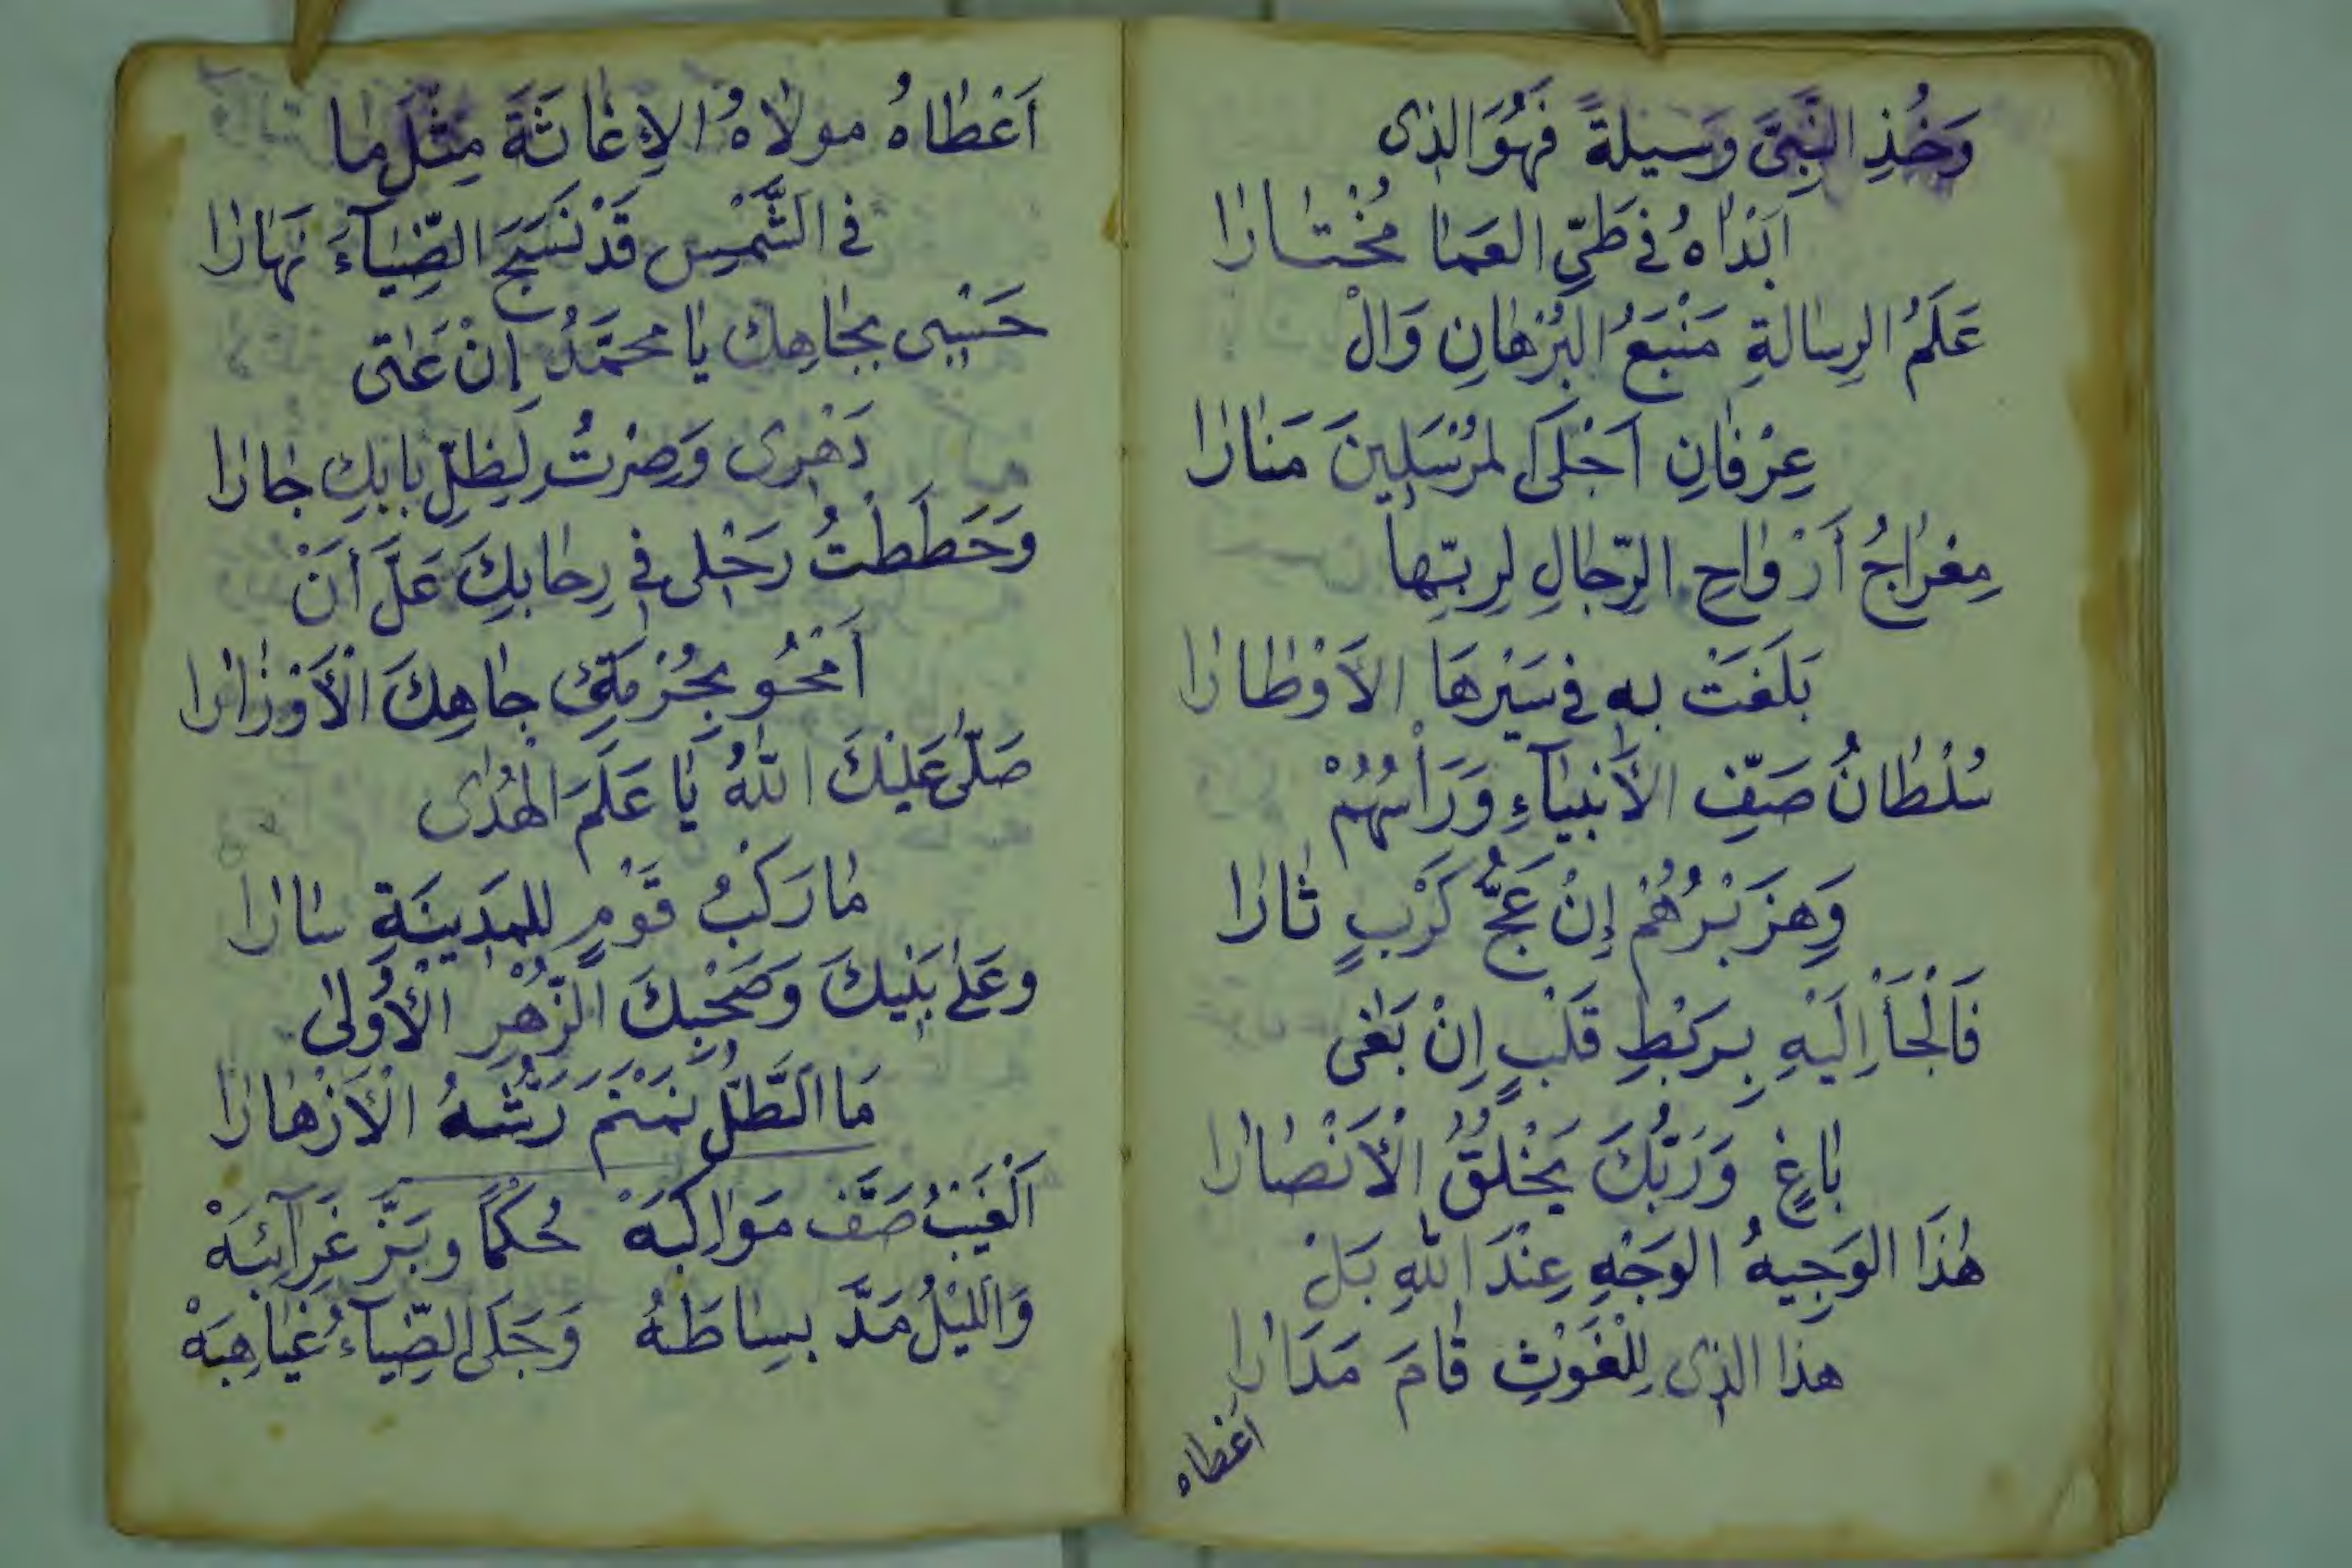 وَخُذِ النَّبِيَّ وَسيلةً فَهُوَ الذى
اَبْدَاهُ فى طَيِّ العَمَا مُخْتَارا
عَلَمُ الرِسالةِ مَنْبَعُ البُرْهانِ وَالْ
عِرْفانِ اَجْلَى المُرْسَلِينَ مَنَارا
مِعْراجُ أَرْواحِ الرِّجالِ لِرِبِّها
بَلَغَتْ به فى سَيْرِهَا الاَوْطارا
سُلْطانُ صَفِّ الأَنبيَآءِ وَرَأْسُهُمْ
وَهِزَبْرُهُمْ إِنْ عَجُّ كَرْبٍ ثَارا
فَالْجَأْ اِلَيْهِ بِرَبْطِ قَلْبٍ اِنْ بَغَى
بَاغٍ وَرَبُّكَ يَخْلُقُ الْأَنْصَارا
هٰذَا الوَجِيهُ الوَجْهِ عِنْدَ اللهِ بَلْ
هذا الذى لِلْغَوْثِ قَامَ مَدَارا
اَعْطاه
اَعْطَاهُ مولَاهُ الاِغَاثَةَ مِثْلَ مَا
فى الشَّمْسِ قَدْ نَسَجَ الضِّيَآءَ نَهَارا
حَسْبِى بِجَاهِكَ يَا محمَّدُ اِنْ عَتَى
دَهْرِى وَصِرْتُ لِظِلِّ بابِكَ جارا
وَحَطَطْتُ رَحْلِى فى رِحابِكَ عَلَّ أَنْ
اَمْحُو بِحُرْمَةِ جَاهِكَ الْأَوْزَارا
صَلَّى عَلَيْكَ اللهُ يَا عَلَمَ الهُدَى
مَا رَكْبُ قَوْمٍ للمَدِينَةِ سَارا
وعَلَى بَنِيكَ وَصَحْبِكَ الزُّهْرِ الْأُولَى
مَا الطَّلُّ نَمْنَمَ رَشُّهُ الْأَزْهَارا
اَلْغَيْبُ صَفَّ مَوَاكِبَهْ حُكْمًا وبَزَّ غَرَآئِبَهْ
وَاللَّيْلُ مَدَّ بسِاطَهُ وَجَلَى الضِّيَآءُ غَيَاهِبَهْ